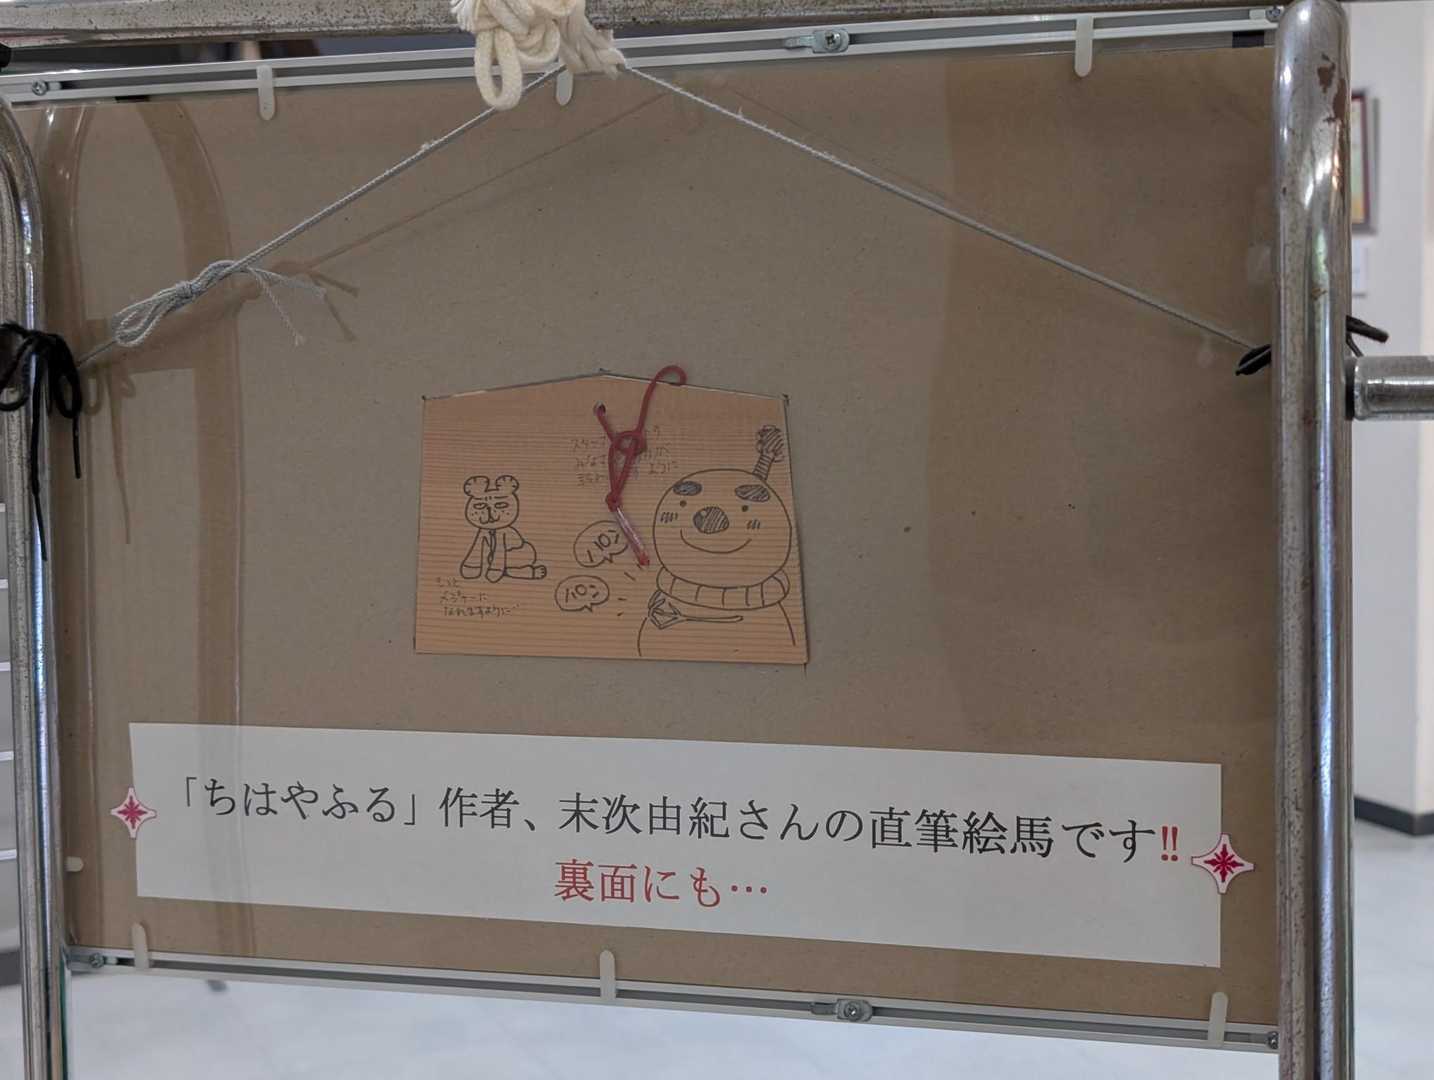 スタッフ
みなさ
ように
パン
パン
もっと
メジャーに
なれますように…
「ちはやふる」作者、末次由紀さんの直筆絵馬です!!
裏面にも…